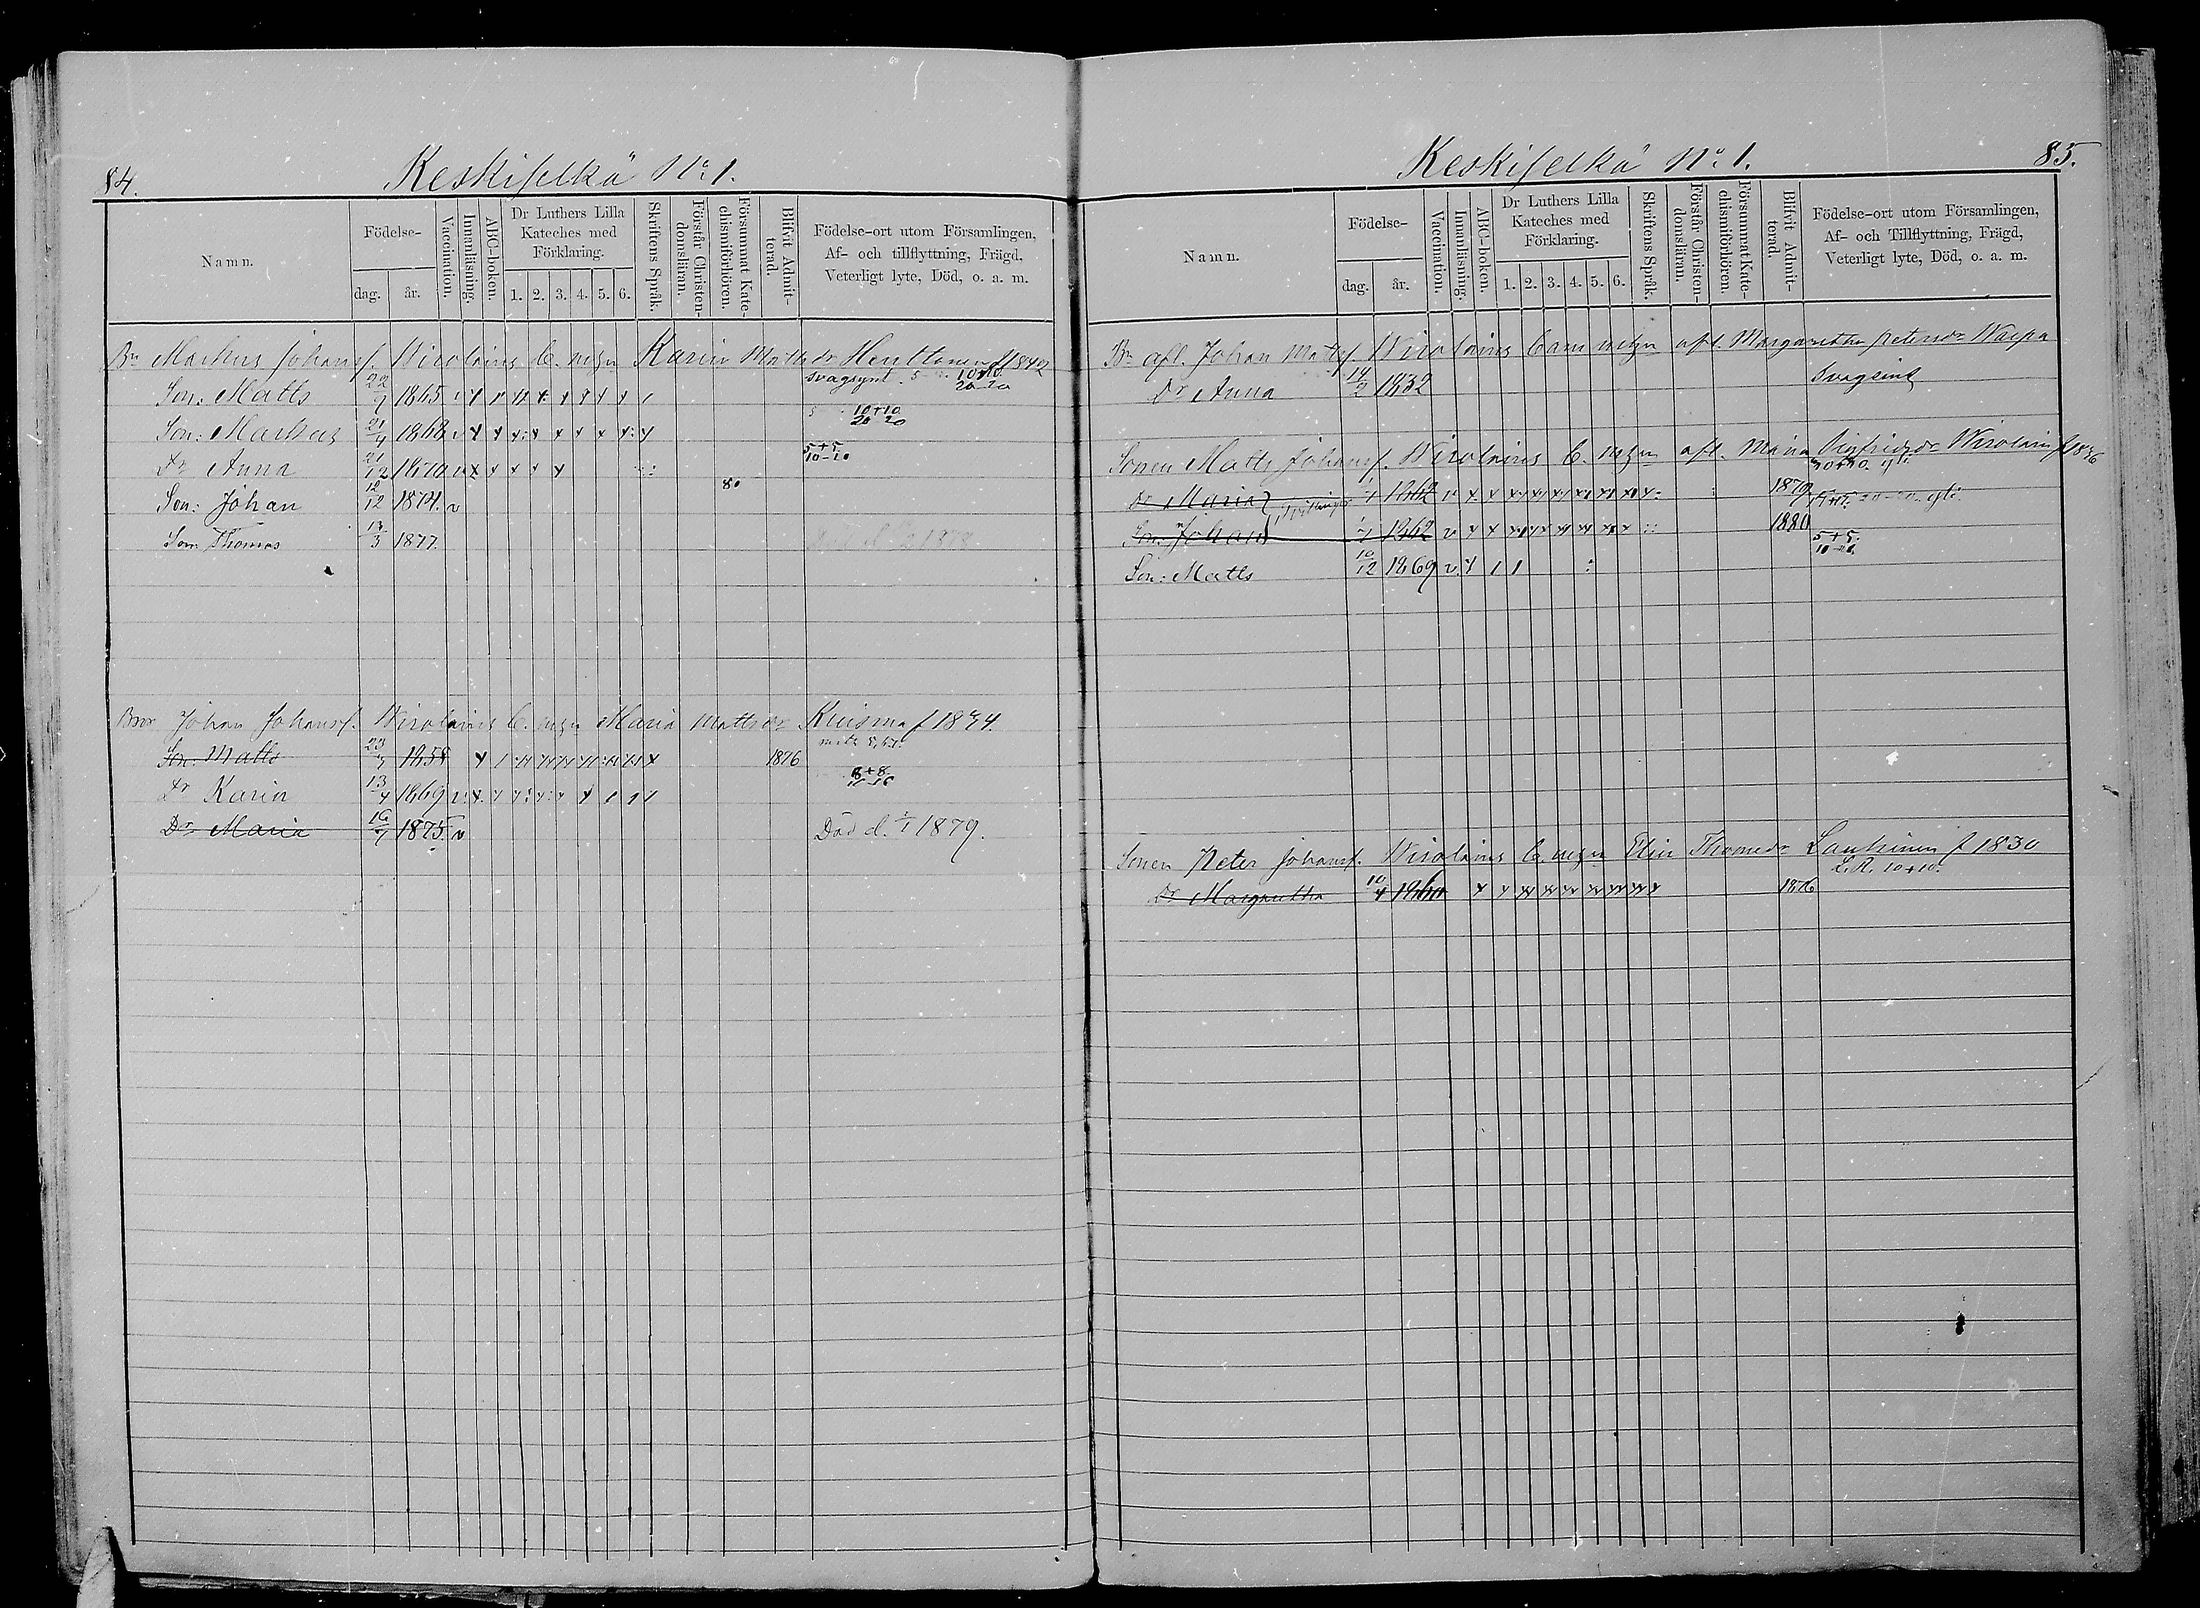 84.
Keskiselkä No 1.
Namn.
Födelse-
dag.
år.
Vaccination.
Innanläsning.
ABC-boken.
Dr Luthers Lilla
Kateches med
Förklaring.
1. 2. 3. 4. 5. 6.
Skriftens Språk.
Förstår Christen-
domsläran.
Försummat Kate-
chismiförhören.
Blifvit Admit-
terad.
Födelse-ort utom Församlingen,
Af- och tillflyttning, Frägd,
Veterligt lyte, Död, o. a. m.
Br Markus Johansf. Wirolains Karin Matts dr Henttonen f 1842
Son: Matts 22/9 1865 svagsynt
Son: Markus 21/4 1868 10+10 20 20
Dr Anna 21/12 1870 5+5 10-10
Son: Johan 12/12 1874. v 80
Son: Thomas 13/3 1877.
Bror Johan Johansf. Wirolains Maria Mattsdr Kuisma f 1834.
Son: Matts 23/9 1858 1876
Dr Karin 13/4 1869 8+8 16-16
Dr Maria 16/7 1875. v Död d. 1879.
85.
Keskiselkä No 1.
Namn.
Födelse-
dag.
år.
Vaccination.
Innanläsning.
ABC-boken.
Dr Luthers Lilla
Kateches med
Förklaring.
1. 2. 3. 4. 5. 6.
Skriftens Språk.
Förstår Christen-
domsläran.
Försummat Kate-
chismiförhören.
Blifvit Admit-
terad.
Födelse-ort utom Församlingen,
Af- och Tillflyttning, Frägd,
Veterligt lyte, Död, o. a. m.
Br afl. Johan Mattsf. Wirolains afl. Margaretha Petersdr Waepa
Dr Anna 14/2 1832 Svagsint
Sonen Matts Johansf. Wirolains afl. Maria Wirolain f 1836
Dr Maria 1862 1879
Son: Johan 1862 1880
Son: Matts 10/12 1869 5+5. 10
Sonen Peter Johansf. Wirolains Elin Thomasdr Laukinen f 1830
Dr Margaretha 10/4 1860 1876 10+10.